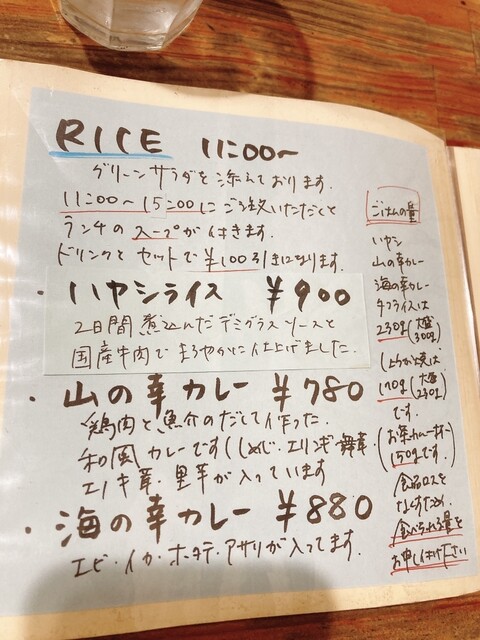 RICE 11:00〜
グリーンサラダを添えております。
11:00〜15:00にご注文いただくと
ランチのスープが付きます。
ドリンクとセットで¥100引きになります。
・ハヤシライス ¥900
2日間煮込んだデミグラスソースと
国産牛肉でまろやかに仕上げました。
・山の幸カレー ¥780
鶏肉と魚介のだしで作った
和風カレーです(しめじ・エリンギ・舞茸・
エノキ茸・里芋が入っています
・海の幸カレー ¥880
エビ・イカ・ホタテ・アサリが入ってます。
ごはんの量
ハヤシ
山の幸カレー
海の幸カレー
ライスは
230g(大盛300g)
しょうが焼は
170g(大盛230g)
です。
(お茶わん一杯
150gです。)
食品ロスを
なくすため、
食べられる量を
お申し付け下さい